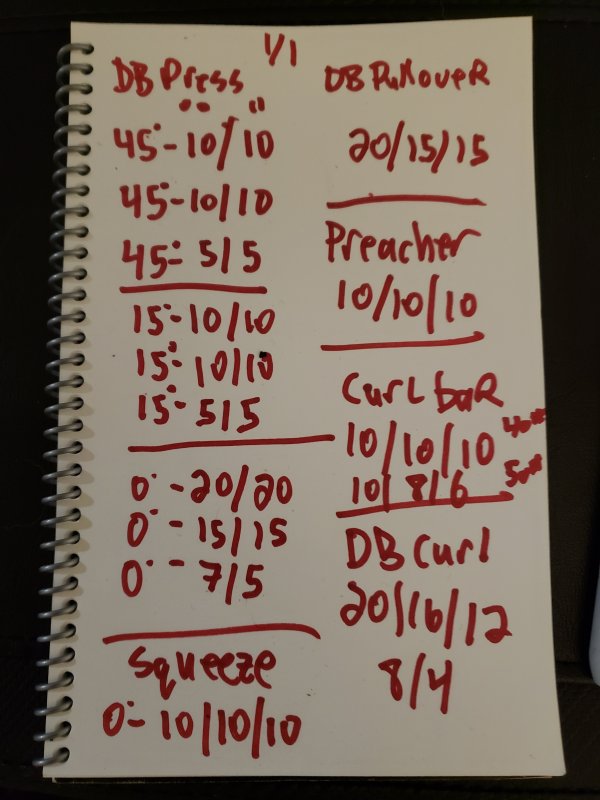 1/1
DB Press
45°- 10/10
45°- 10/10
45°- 5/5
15°- 10/10
15°- 10/10
15°- 5/5
0° - 20/20
0° - 15/15
0° - 7/5
Squeeze
0°- 10/10/10
DB PullOveR
20/15/15
Preacher
10/10/10
CurL baR
10/10/10 40#
10/8/6 50#
DB Curl
20/16/12
8/4